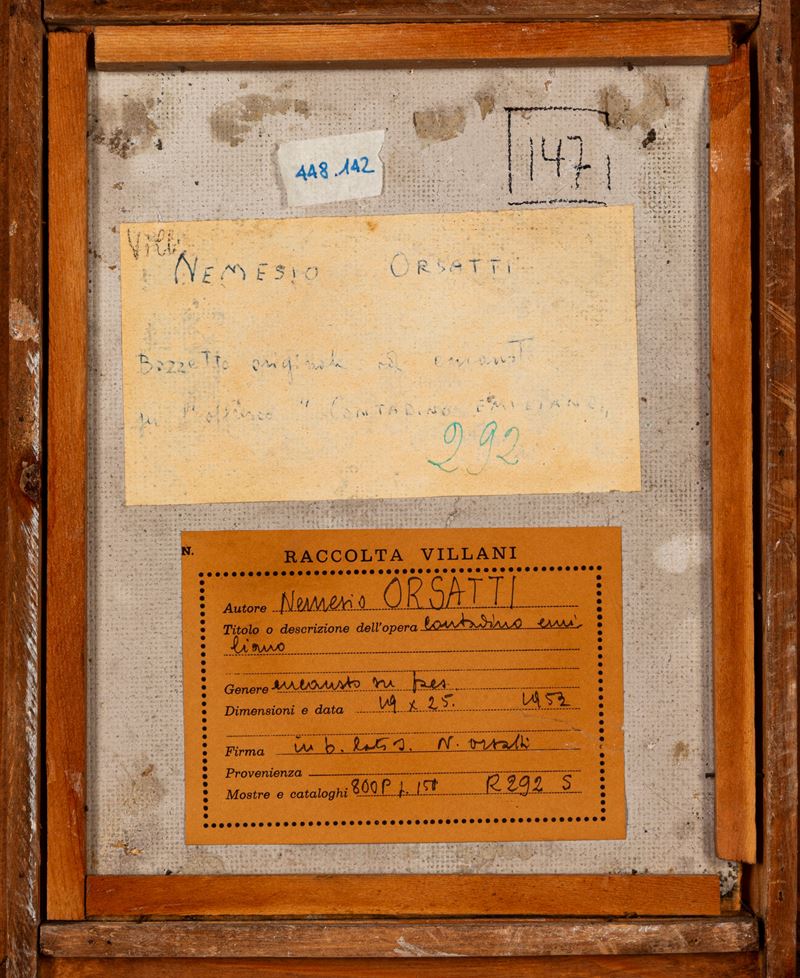 448.142
147
NEMESIO ORSATTI
Bozzetto originale ad encausto
per l'affresco "CONTADINO EMILIANO"
292
N.
RACCOLTA VILLANI
Autore Nemesio ORSATTI
Titolo o descrizione dell'opera Contadino emi-
liano
Genere encausto su
Dimensioni e data 19 x 25. 1953
Firma in b. lato s. N. Orsatti
Provenienza
Mostre e cataloghi 800P p. 150 R 292 S